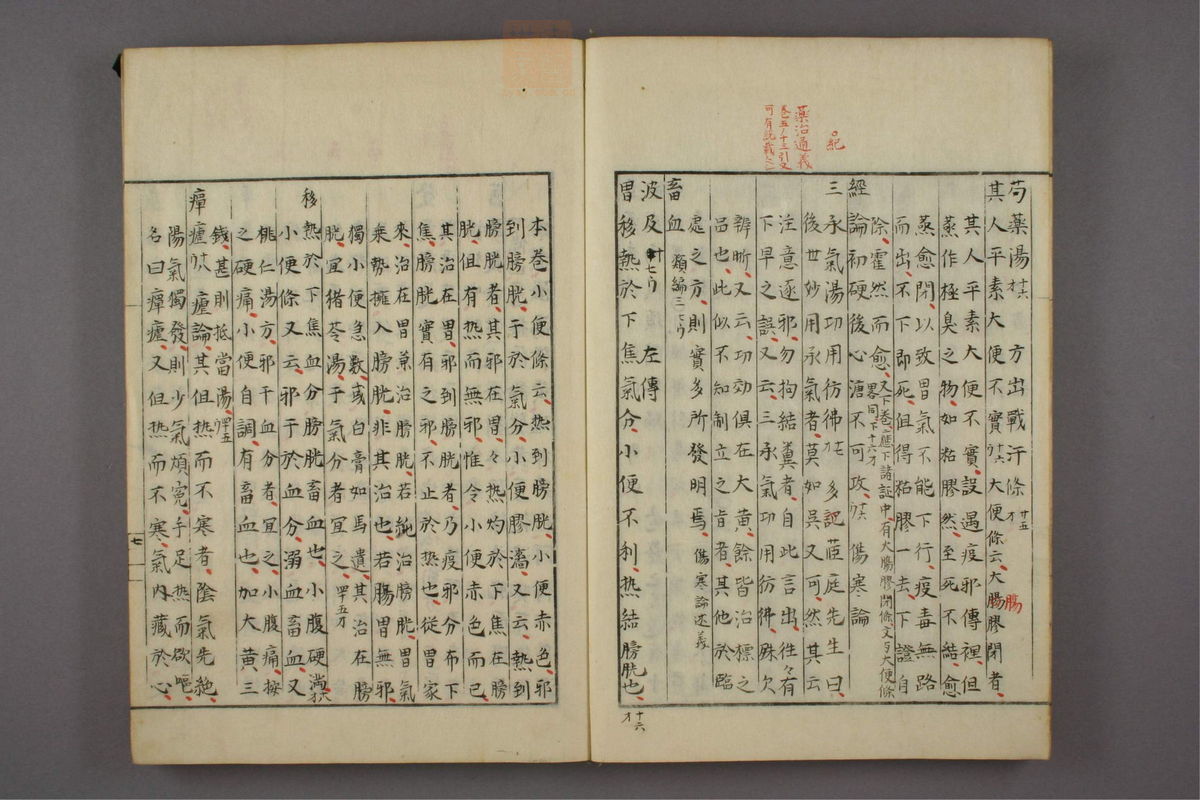 藥治通義
巻五ノ十三引又
可有説載之
紀
芍藥湯 方出戰汗條 廿五オ
其人平素大便不實 大便條云大腸膠閉者
其人平素大便不實設遇疫邪傳裡但
蒸作極臭之物如粘膠然至死不結愈
蒸愈閉以致胃氣不能下行疫毒無路
而出不下即死但得粘膠一去下證自
除霍然而愈 又下巻應下諸証中有大腸膠閉條文与大便條畧同下十六オ
經論初硬後心溏不可攻 傷寒論
三承氣湯功用彷彿 多記茝庭先生曰
後世妙用承氣者莫如吳又可然其云
注意逐邪勿拘結糞者自此言出往々有
下早之誤又云三承氣功用彷彿殊欠
辨晣又云功効俱在大黄餘皆治標之
品也此似不知制立之肯者其他於臨
處之方則實多所發明焉 傷寒論述義
畜血 類編三
波及 左傳
胃移熱於下焦氣分小便不利热結膀胱也 十六オ
本巻小便條云热到膀胱小便赤色邪
到膀胱于於氣分小便膠濇又云熱到
膀胱者其邪在胃々热灼於下焦在膀
胱但有热而無邪惟令小便赤色而已
其治在胃邪到膀胱者乃疫邪分布下
焦膀胱實有之邪不止於热也従胃家
來治在胃兼治膀胱若純治膀胱胃氣
乗勢擁入膀胱非其治也若腸胃無邪
獨小便急數或白膏如馬遺其治在膀
胱宜猪苓湯于氣分者宜之 四五オ
移熱於下焦血分膀胱畜血也小腹硬満
小便條又云邪于於血分溺血畜血又
桃仁湯方邪干血分者宜之小腹痛按
之硬痛小便自調有畜血也加大黄三
錢甚則抵當湯 四五
瘅瘧 瘧論其但热而不寒者陰氣先絶
陽氣獨發則少氣煩寃手足热而欲嘔
名曰瘅瘧又但热而不寒氣内藏於心